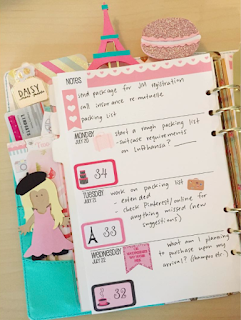 NOTES
send package for JM registration
call insurance re: mutuelle
packing list
DAISY
MONDAY
JULY 20
start a rough packing list
- suitcase requirements
on Lufthansa?
34
TUESDAY
JULY 21
work on packing list
- extended
- check Pinterest/online for
anything missed (new
suggestions)
33
WEDNESDAY
JULY 22
what am I planning
to purchase upon my
arrival? (shampoo etc.)
32